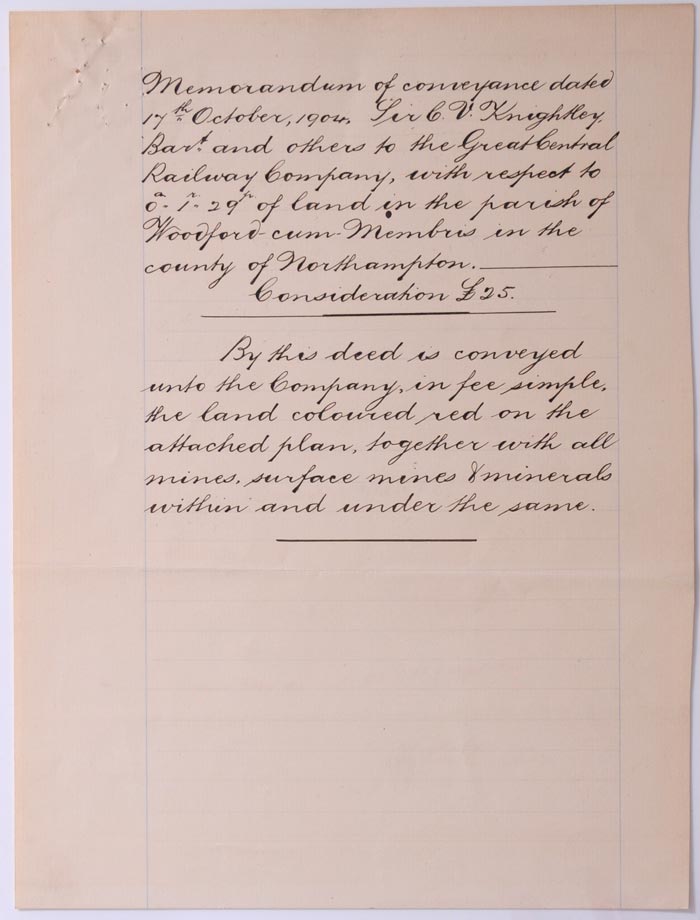 Memorandum of conveyance dated
17th October, 1904. Sir C. V. Knightley
Bart. and others to the Great Central
Railway Company, with respect to
0a- 1r- 29p of land in the parish of
Woodford-cum-Membris in the
county of Northampton.
Consideration £25.
By this deed is conveyed
unto the Company, in fee simple,
the land coloured red on the
attached plan, together with all
mines, surface mines & minerals
within and under the same.